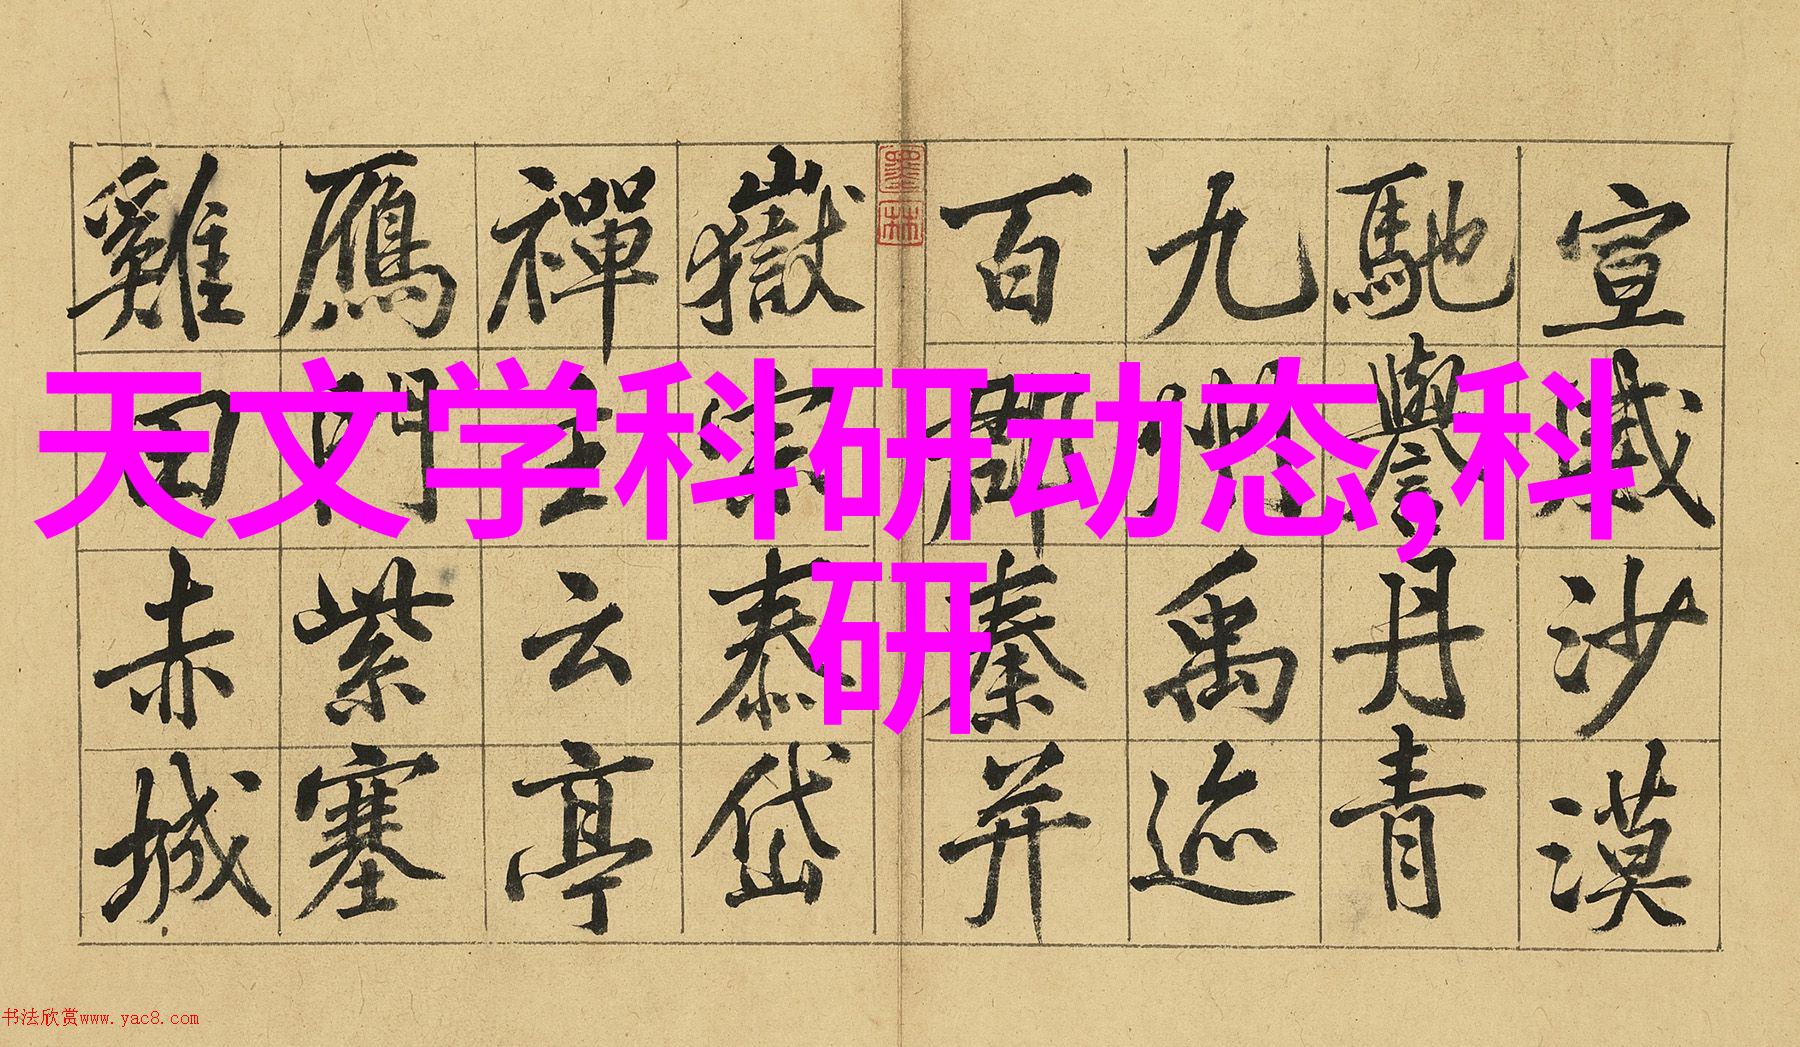 天文学科研动态,科
研
宣威沙漠
馳譽丹青
九州禹迹
百郡秦并
墨林
嶽宗泰岱
禪主云亭
鴈門紫塞
雞田赤城
书法欣赏www.yac8.com